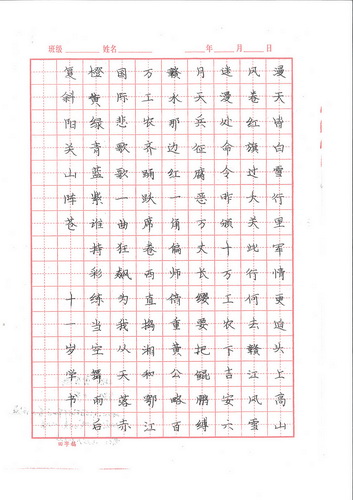 班级 姓名 年 月 日
漫天皆白雪行里军情更迫头上高山
风卷红旗过大关此行何去赣江风雪
迷漫处命令昨颁十万工农下吉安六
月天兵征腐恶万丈长缨要把鲲鹏缚
赣水那边红一角偏师借重黄公略百
万工农齐踊跃席卷西直捣湘和鄂江
国际悲歌歌一曲狂飙为我从天落赤
橙黄绿青蓝紫谁持彩练当空舞雨后
复斜阳关山阵苍 十一岁学书